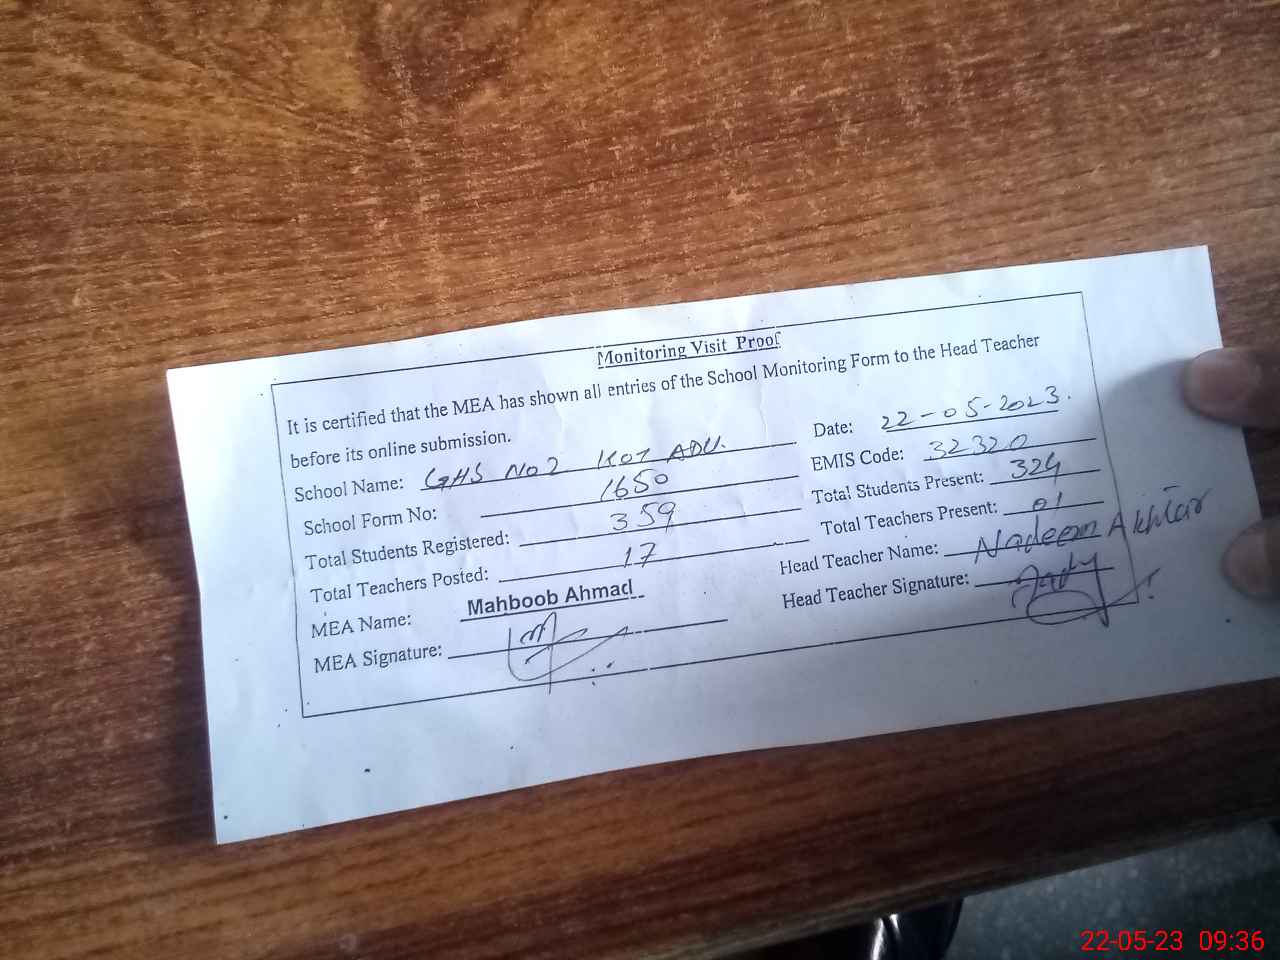 Monitoring Visit Proof
It is certified that the MEA has shown all entries of the School Monitoring Form to the Head Teacher
before its online submission.
Date: 22-05-2023.
School Name: GHS No2 KOT ADU.
EMIS Code: 32320
School Form No: 1650
Total Students Present: 324
Total Students Registered: 359
Total Teachers Present: 01
Total Teachers Posted: 17
Head Teacher Name: Nadeem Akhtar
MEA Name: Mahboob Ahmad
Head Teacher Signature:
MEA Signature:
22-05-23 09:36